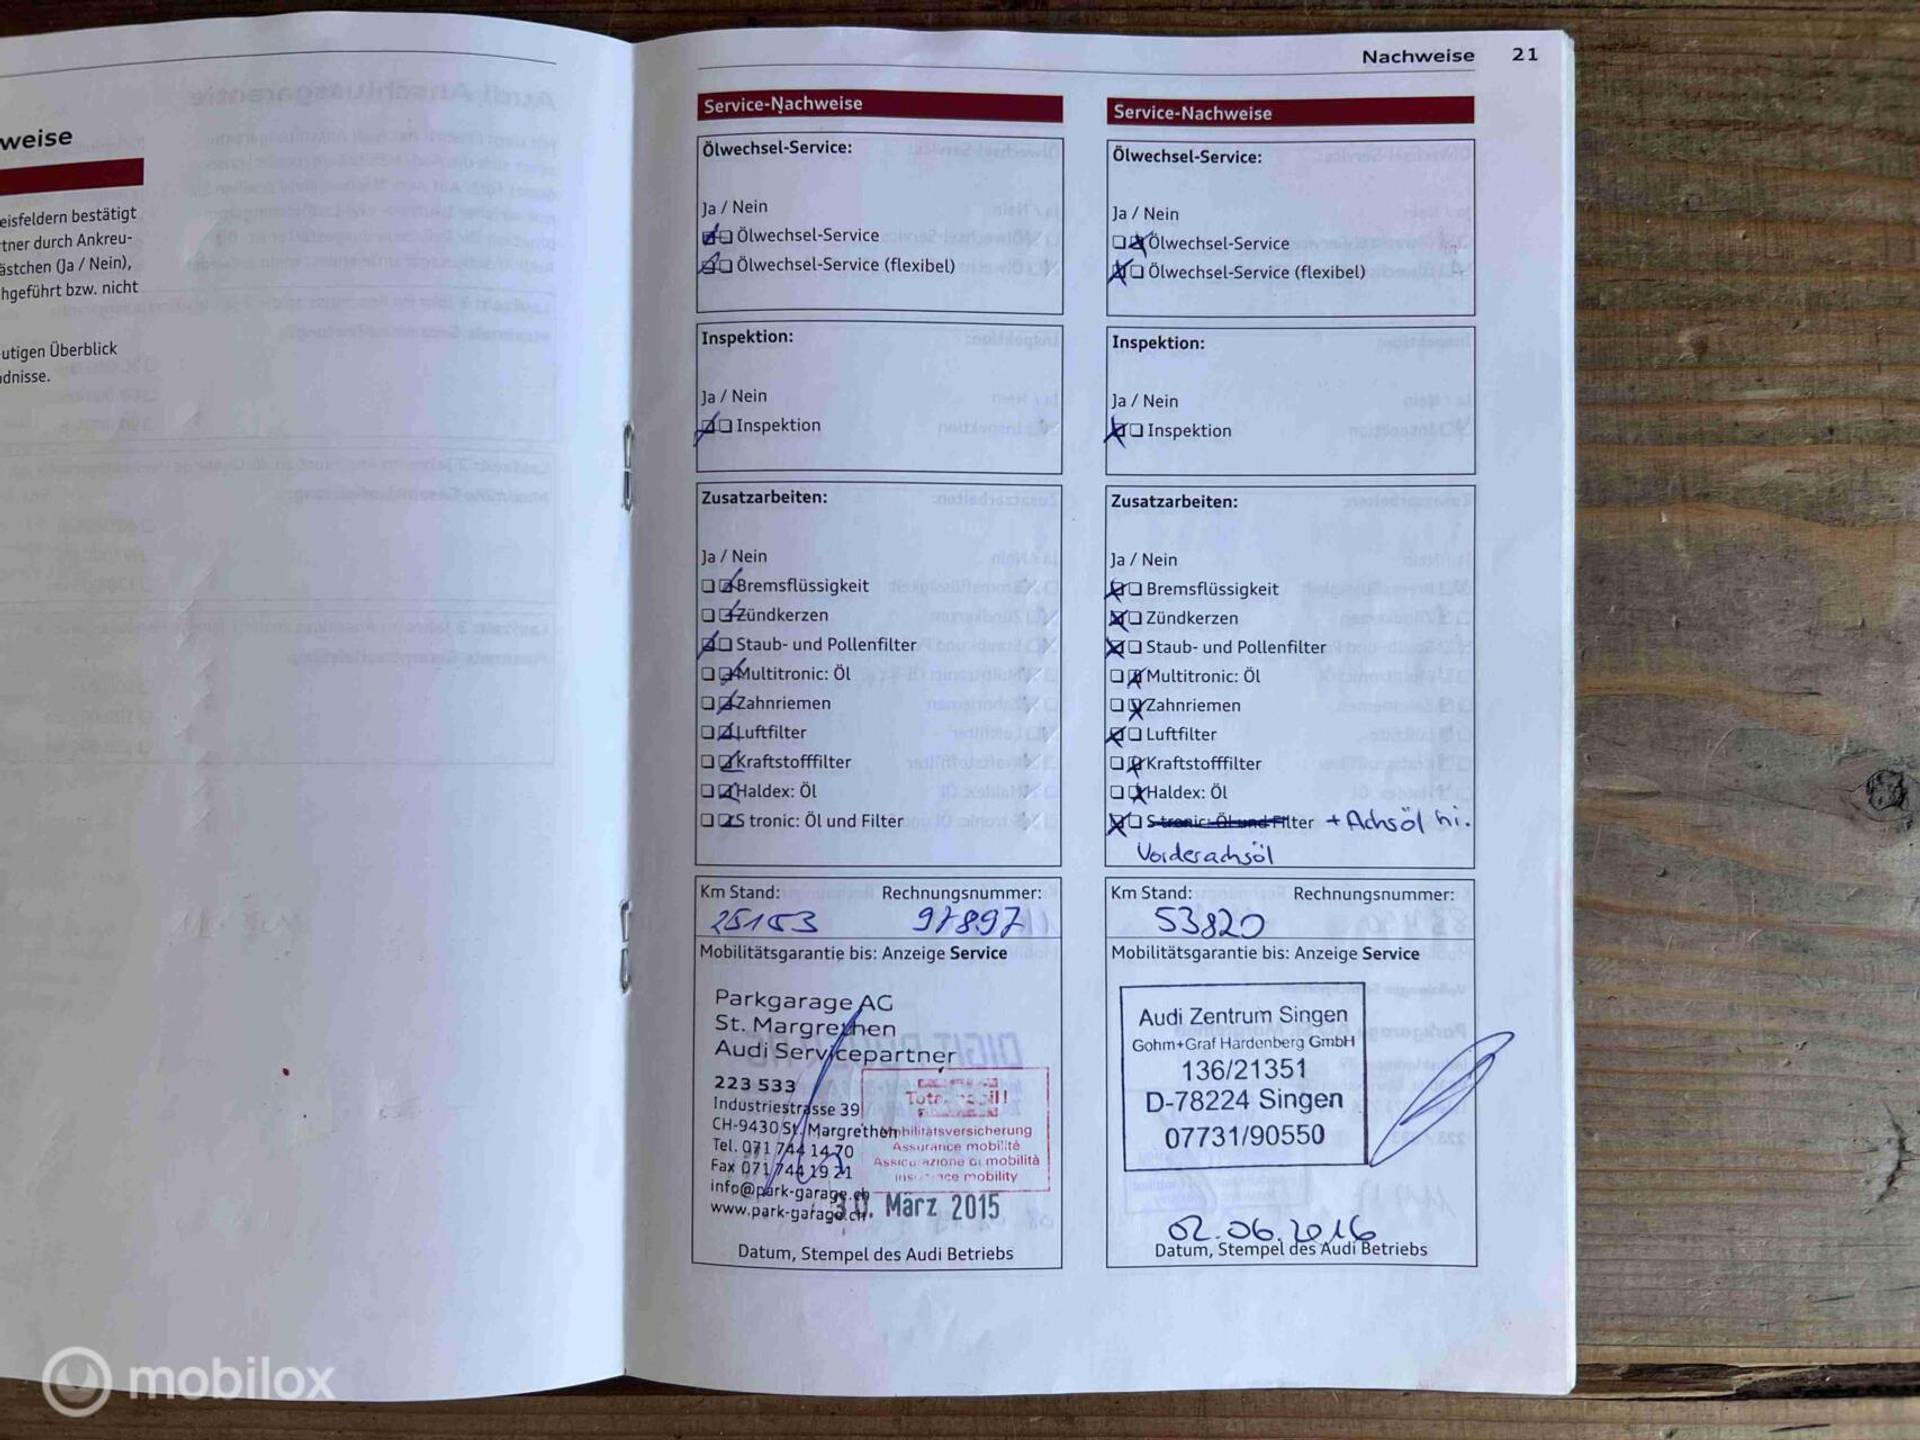 weise
eisfeldern bestätigt
tner durch Ankreu-
ästchen (Ja / Nein),
hgeführt bzw. nicht
utigen Überblick
dnisse.
Nachweise 21
Service-Nachweise
Ölwechsel-Service:
Ja / Nein
Ölwechsel-Service
Ölwechsel-Service (flexibel)
Inspektion:
Ja / Nein
Inspektion
Zusatzarbeiten:
Ja / Nein
Bremsflüssigkeit
Zündkerzen
Staub- und Pollenfilter
Multitronic: Öl
Zahnriemen
Luftfilter
Kraftstofffilter
Haldex: Öl
S tronic: Öl und Filter
Km Stand: Rechnungsnummer:
25153 97897
Mobilitätsgarantie bis: Anzeige Service
Parkgarage AG
St. Margrethen
Audi Servicepartner
223 533
Industriestrasse 39
CH-9430 St. Margrethen
Tel. 071 744 14 70
Fax 071 744 19 21
info@park-garage.ch
www.park-garage.ch
Mobilitätsversicherung
Assurance mobilité
mobilità
mobility
30. März 2015
Datum, Stempel des Audi Betriebs
Service-Nachweise
Ölwechsel-Service:
Ja / Nein
Ölwechsel-Service
Ölwechsel-Service (flexibel)
Inspektion:
Ja / Nein
Inspektion
Zusatzarbeiten:
Ja / Nein
Bremsflüssigkeit
Zündkerzen
Staub- und Pollenfilter
Multitronic: Öl
Zahnriemen
Luftfilter
Kraftstofffilter
Haldex: Öl
S tronic: Öl und Filter + Achsöl hi.
Vorderachsöl
Km Stand: Rechnungsnummer:
53820
Mobilitätsgarantie bis: Anzeige Service
Audi Zentrum Singen
Gohm+Graf Hardenberg GmbH
136/21351
D-78224 Singen
07731/90550
02.06.2016
Datum, Stempel des Audi Betriebs
mobilox